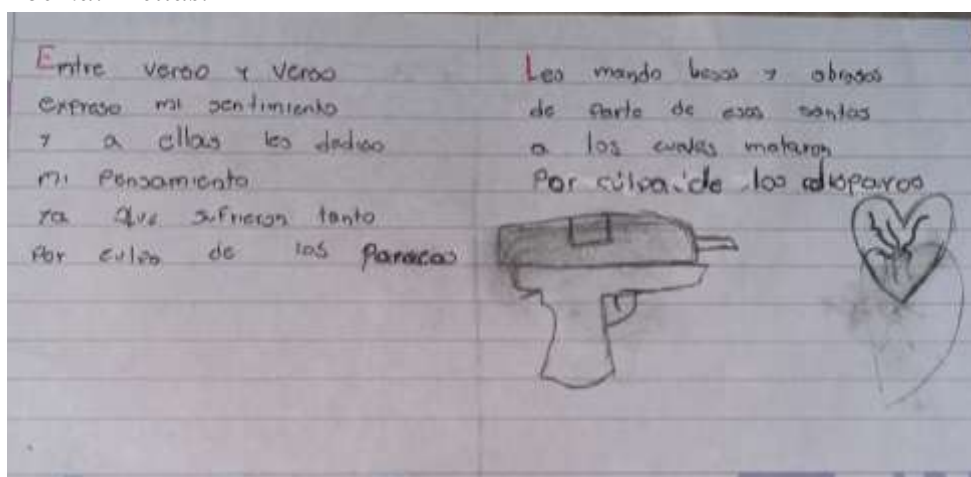 Entre verso y verso
expreso mi sentimiento
y a ellas les dedico
mi Pensamiento
ya que sufrieron tanto
Por culpa de los Paracos
Les mando besos y abrasos
de parte de esas santas
a los cuales mataron
Por culpa de los disparos